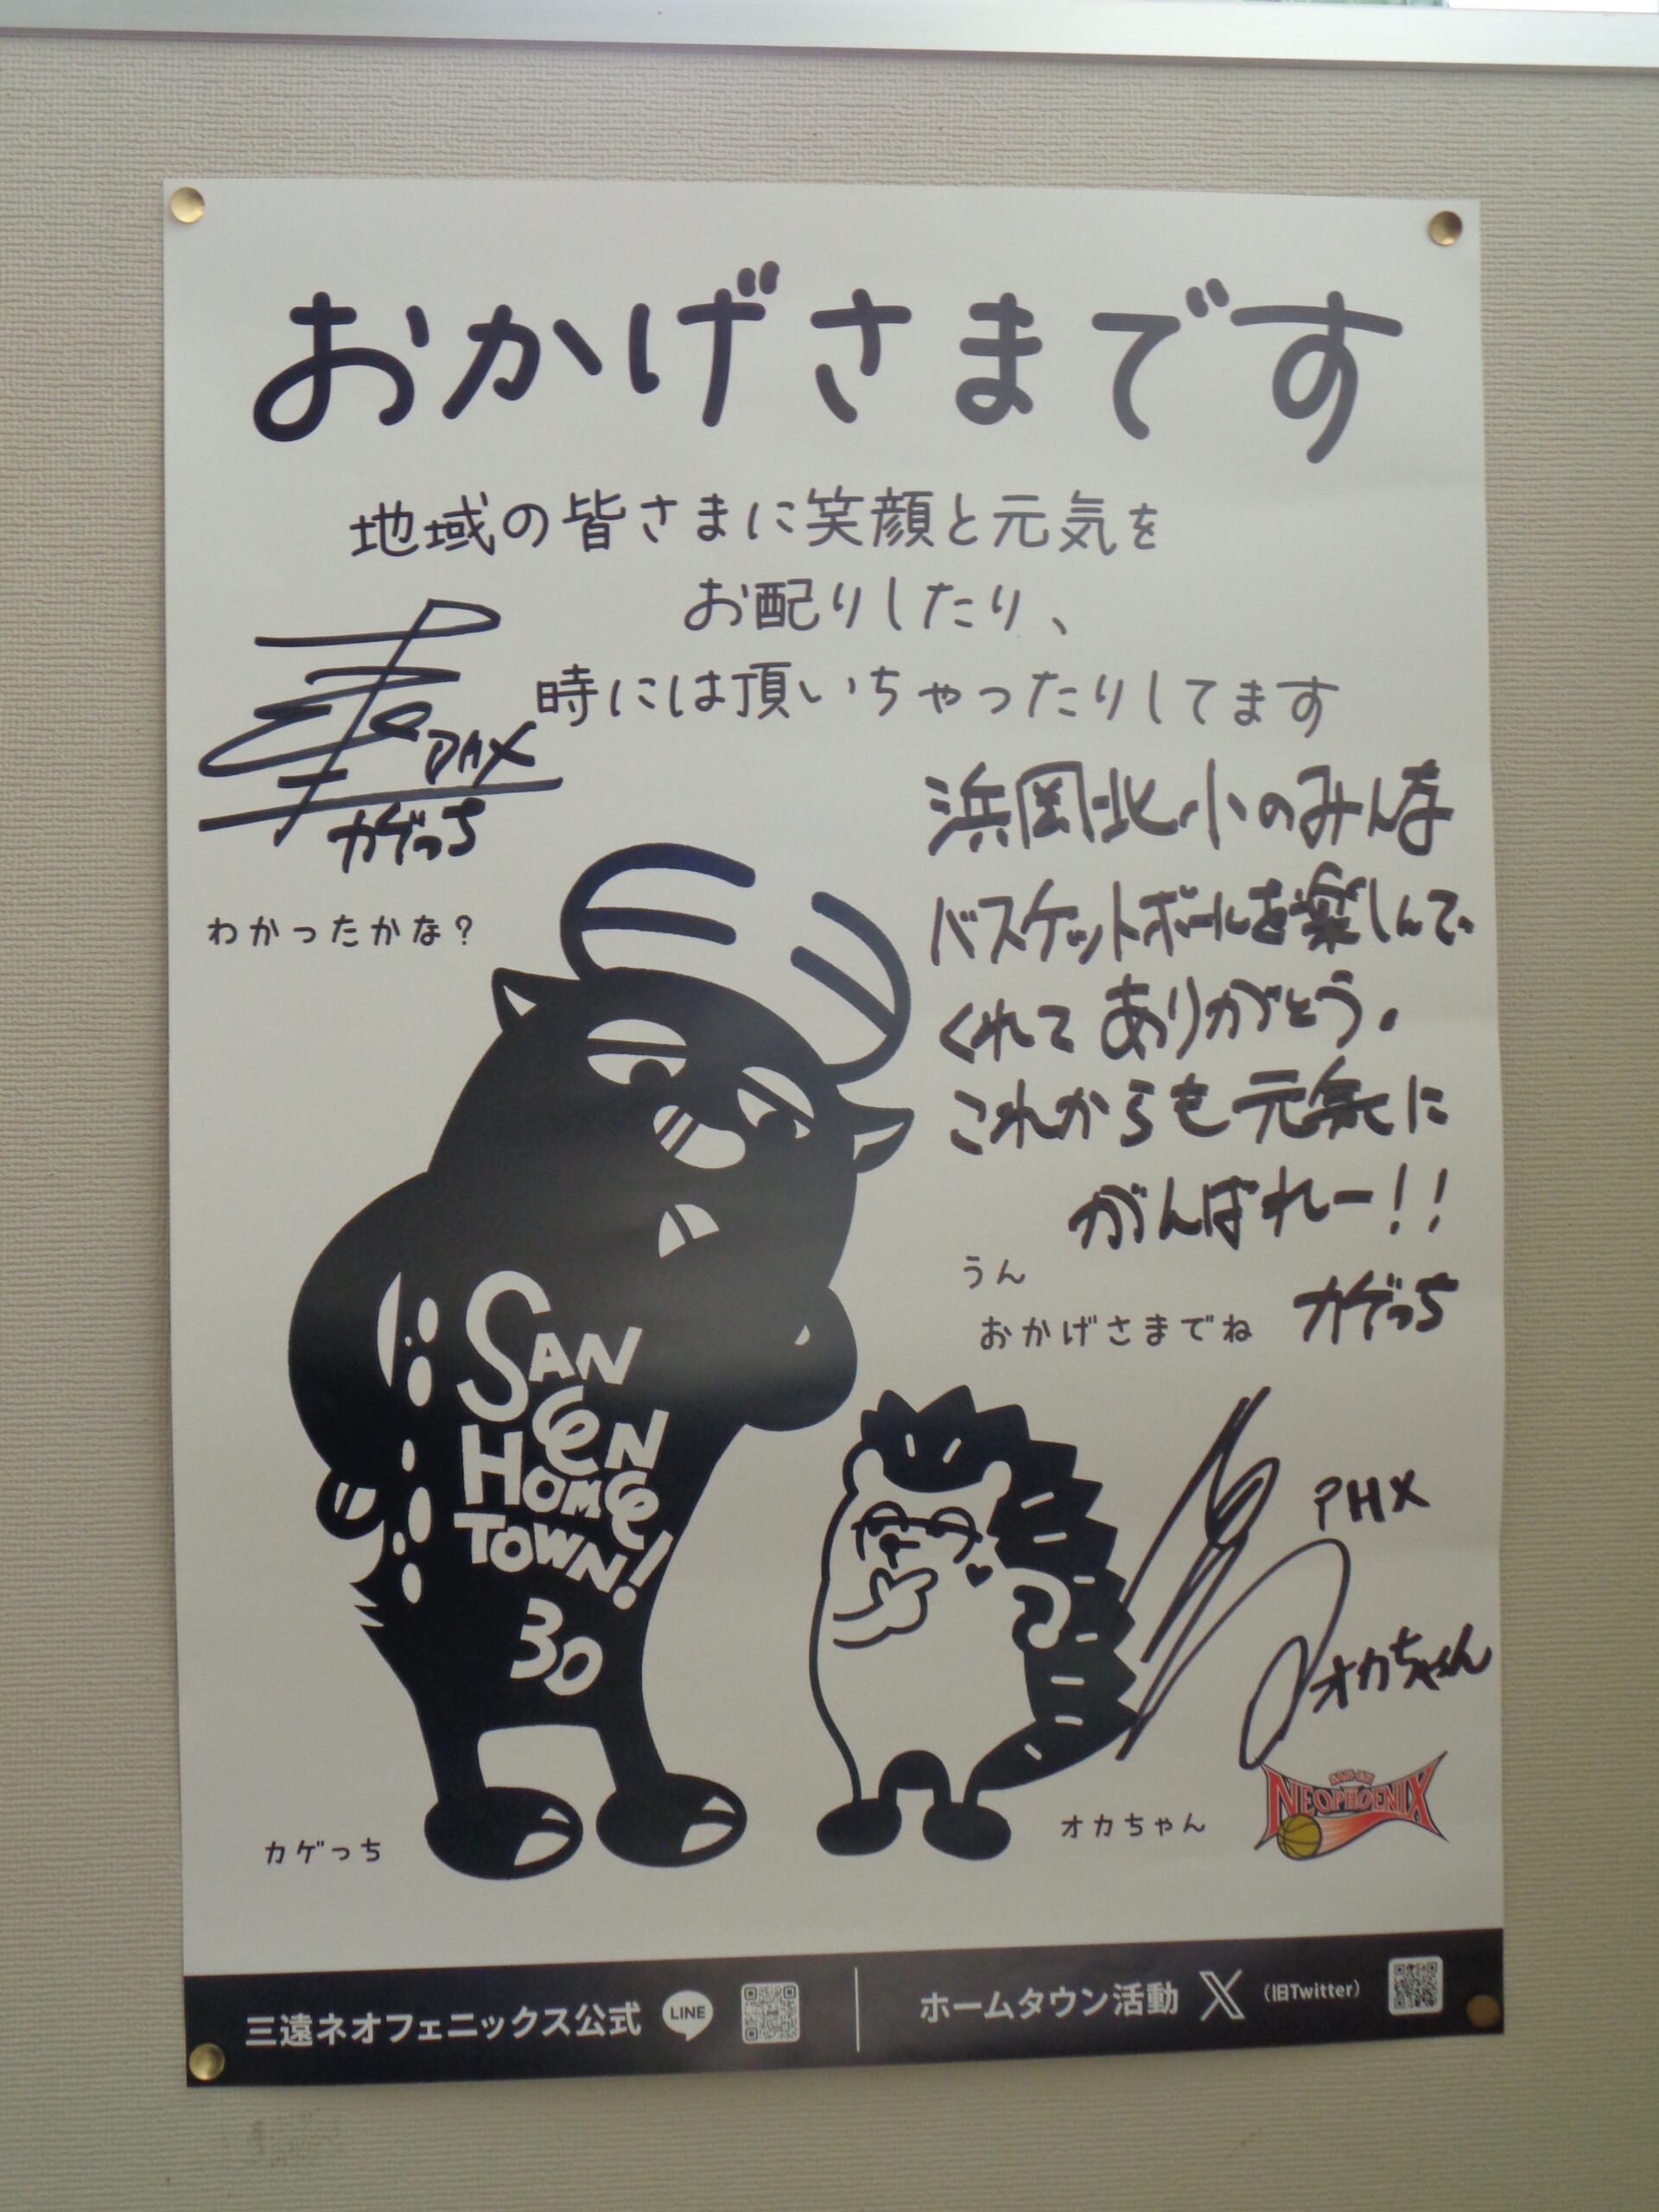 おかげさまです
地域の皆さまに笑顔と元気を
お配りしたり、
時には頂いちゃったりしてます
PHX
カゲっち
わかったかな?
浜岡北小のみんな
バスケットボールを楽しんで
くれてありがとう。
これからも元気に
がんばれー!!
カゲっち
うん
おかげさまでね
SAN
EN
HOME
TOWN!
30
PHX
オカちゃん
カゲっち
オカちゃん
SAN-EN
NEOPHOENIX
三遠ネオフェニックス公式 LINE
ホームタウン活動 X (旧Twitter)